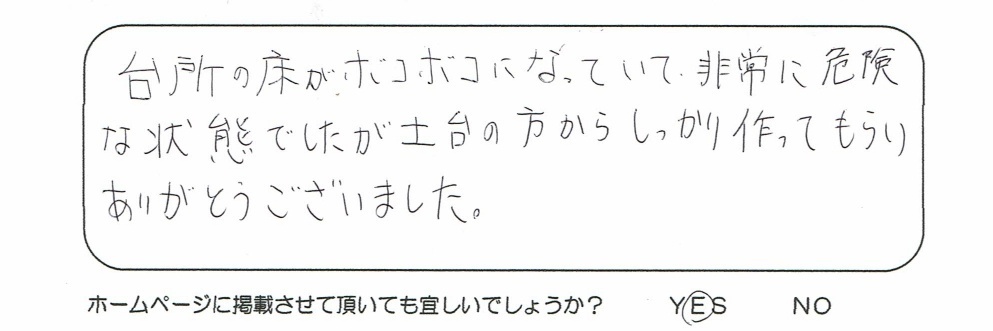 台所の床がボコボコになっていて、非常に危険
な状態でしたが土台の方からしっかり作ってもらい
ありがとうございました。
ホームページに掲載させて頂いても宜しいでしょうか? YES NO